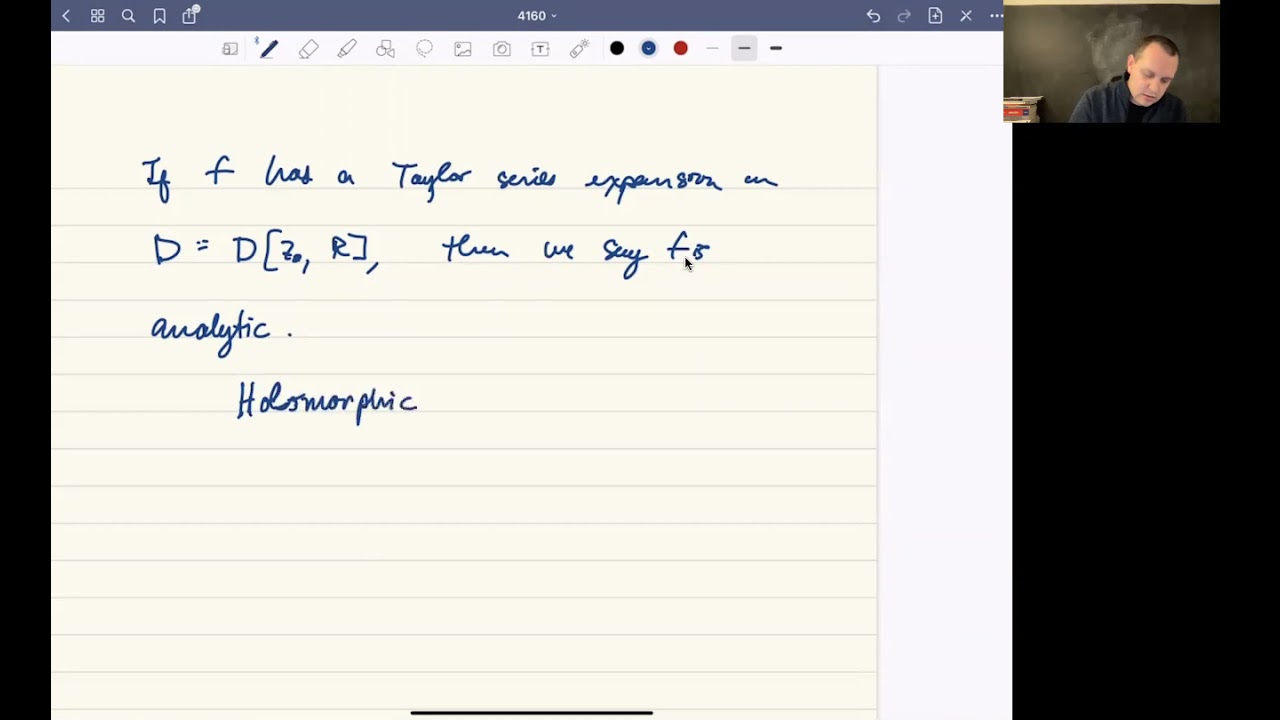 4160
If f has a Taylor series expansion on
D = D[z₀, R], then we say f is
analytic.
Holomorphic